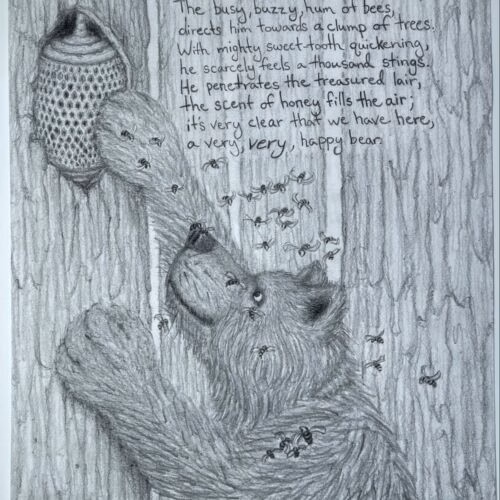 The busy, buzzy, hum of bees,
directs him towards a clump of trees.
With mighty sweet-tooth quickening,
he scarcely feels a thousand stings.
He penetrates the treasured lair,
the scent of honey fills the air;
it's very clear that we have here,
a very, very, happy bear.